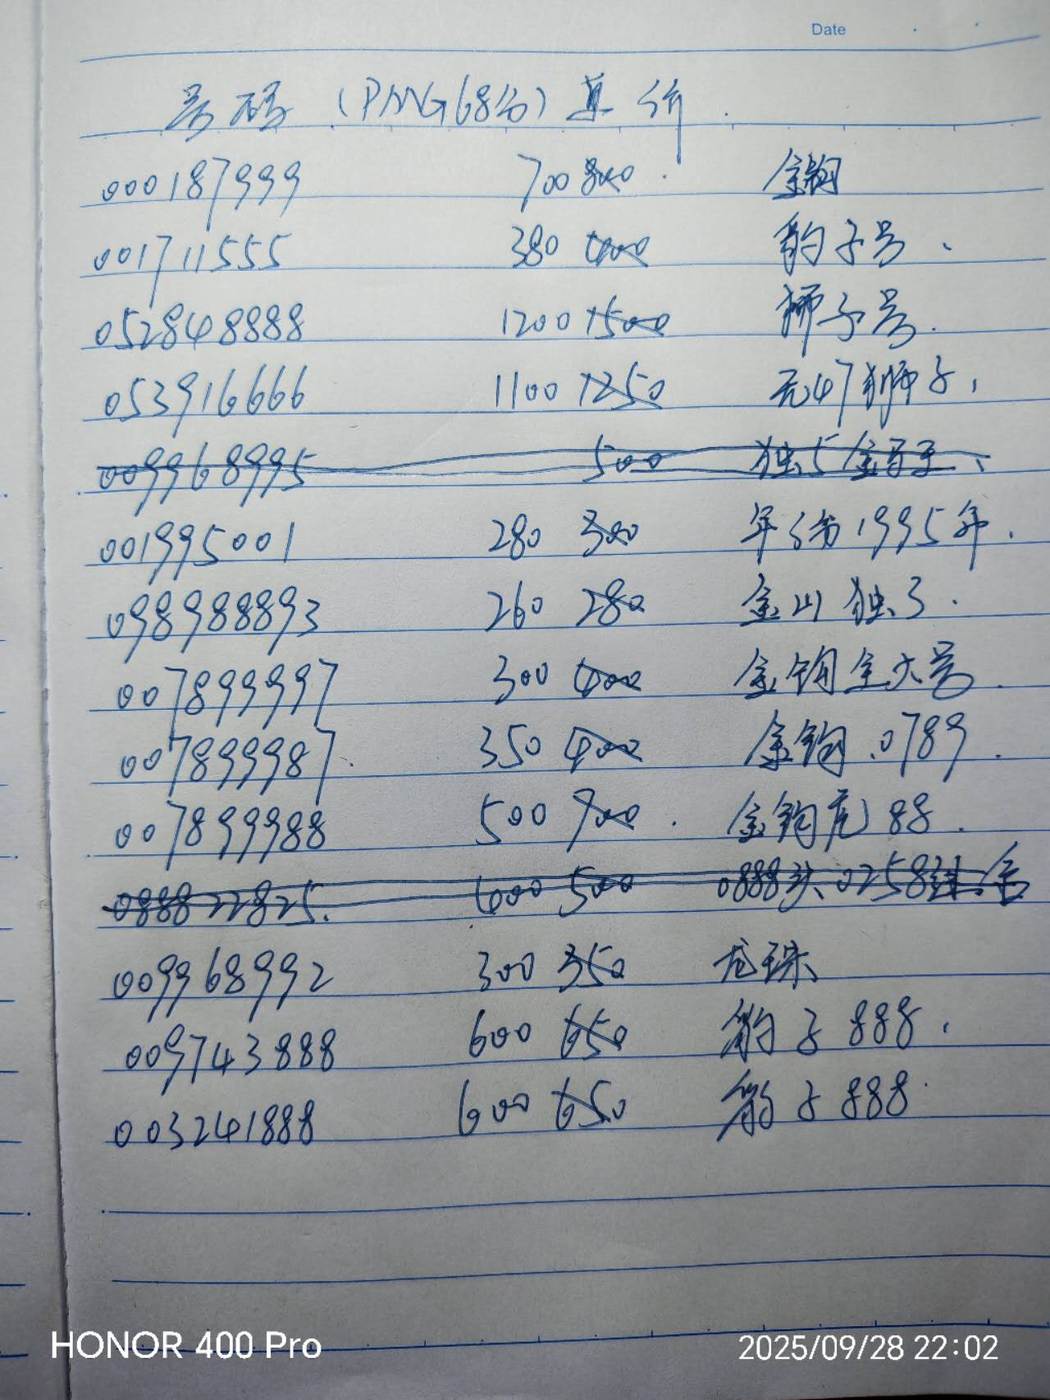 Date
号码 (PMG68分) 单价
000187999 700 800 金钩
001711555 380 400 豹子号
052848888 1200 1500 狮子号
053916666 1100 1250 无47狮子
009968995 500 独5金
001995001 280 300 年份1995年
098988893 260 280 金山独3
007899997 300 400 金钩全大号
007899987 350 400 金钩 0789
007899988 500 900 金钩 88
088822825 400 500 0888 0258
009968992 300 350 龙珠
009743888 600 650 豹子888
003241888 600 650 豹子888
HONOR 400 Pro
2025/09/28 22:02